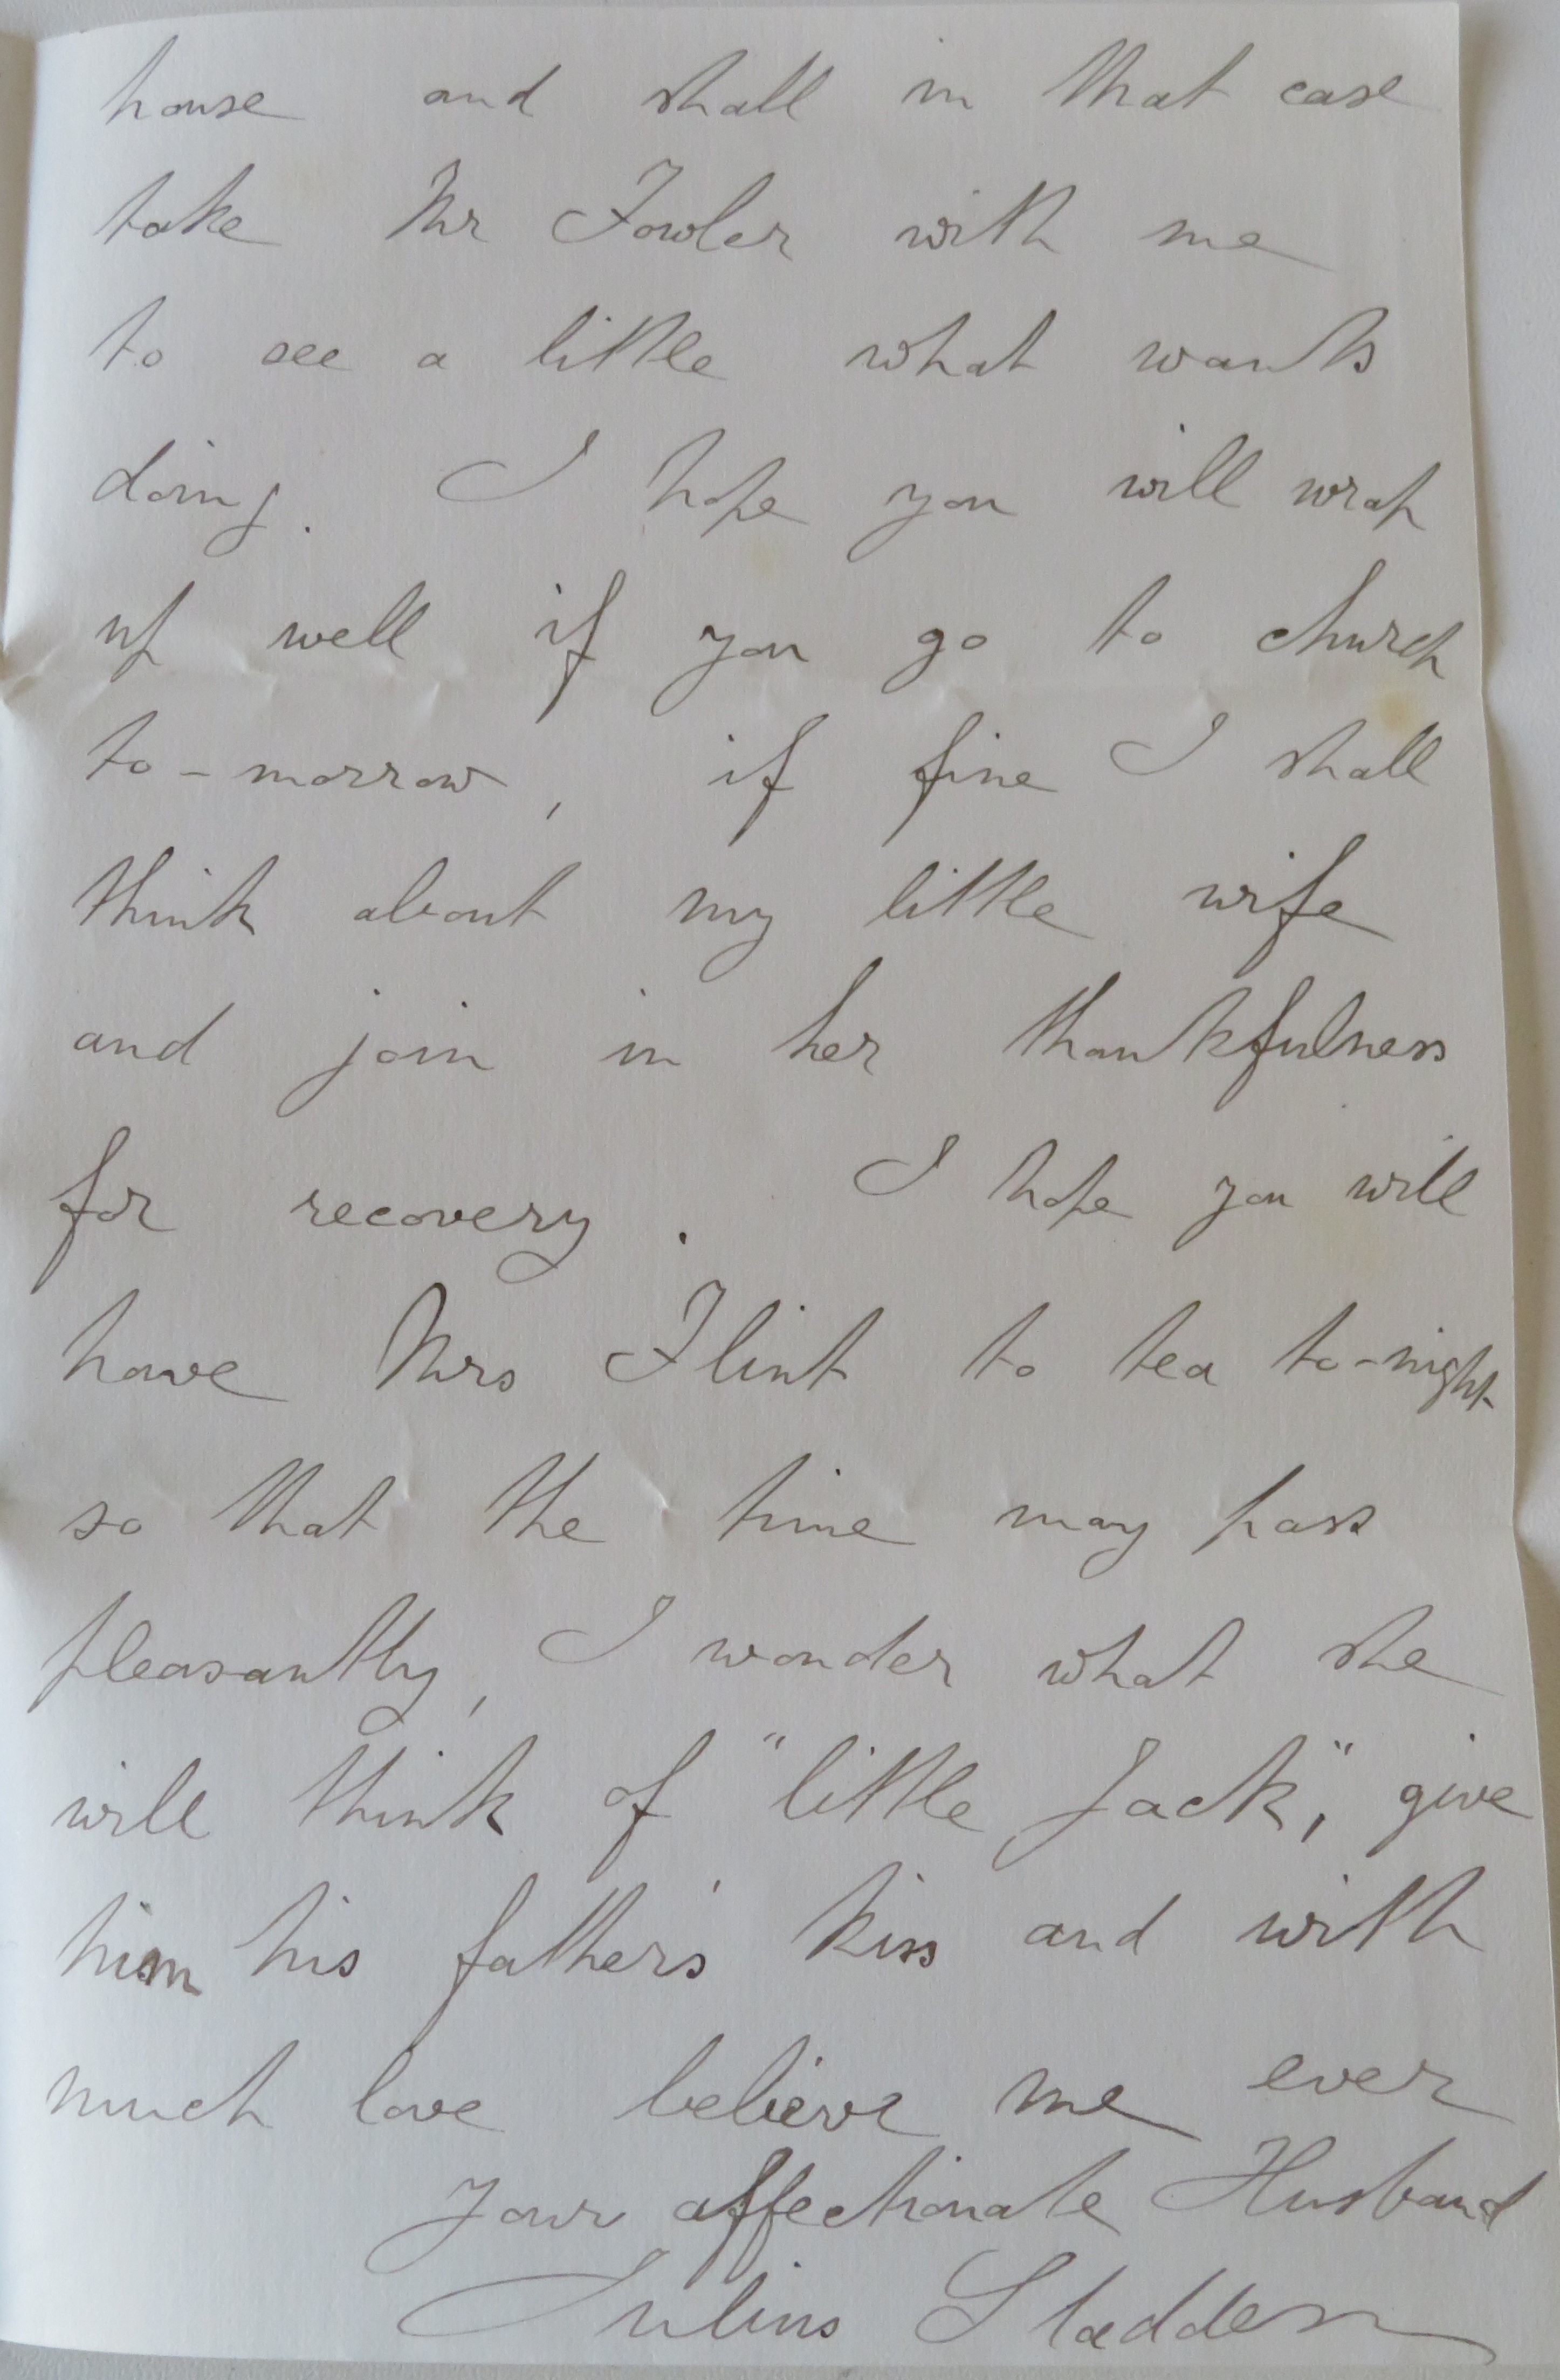 house and shall in that case
take Mr Fowler with me
to see a little what wants
doing. I hope you will wrap
up well if you go to church
to-morrow, if fine I shall
think about my little wife
and join in her thankfulness
for recovery. I hope you will
have Mrs Flint to tea to-night
so that the time may pass
pleasantly, I wonder what she
will think of "little Jack", give
him his father's kiss and with
much love believe me ever
Your affectionate Husband
Julius Sladden